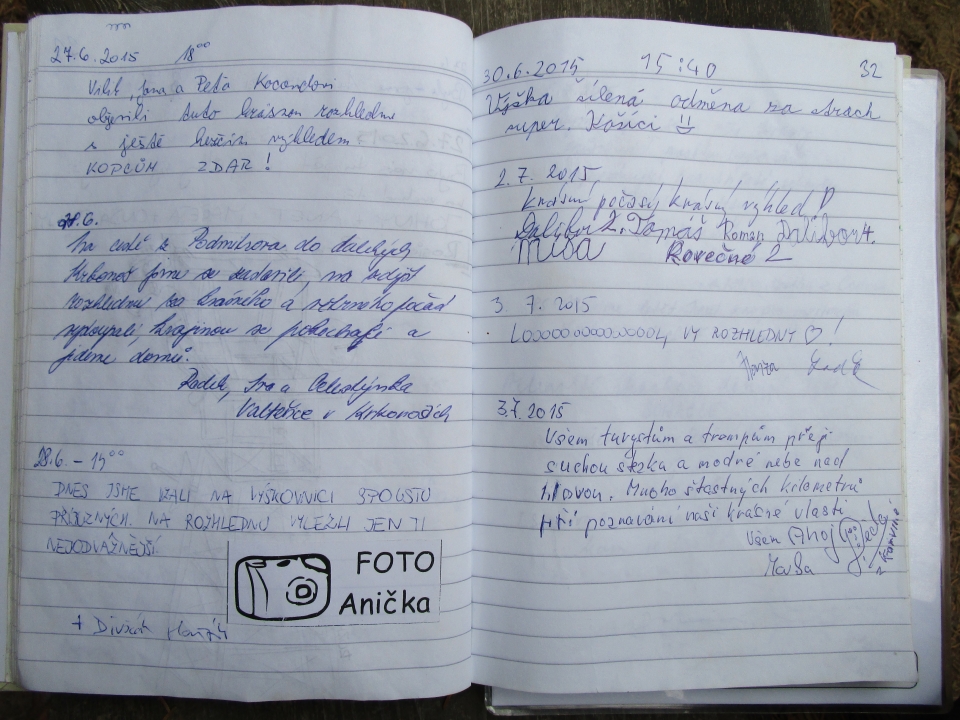 27.6.2015 18⁰⁰
Jana a Péťa Kocandovi
tuto krásnou rozhlednu
s ještě hezčím výhledem
KOPCŮM ZDAR!
28.6.
Na cestě z Podmitrova do dalekých
Krkonoš jsme se zastavili, na zdejší
rozhlednu se a počad
krajinou se a
jdeme domů.
Radek, Iva a Celestýnka
Valteřice v Krkonoších
28.6. – 15⁰⁰
DNES JSME VZALI NA VÝŠKOVNICI SPOUSTU
PŘÍBUZNÝCH. NA ROZHLEDNU VYLEZLI JEN TI
NEJODVÁŽNĚJŠÍ
FOTO
Anička
+ Divočák
30.6.2015 15:40 32
Výška šílená odměna za strach
super. Košíci
2.7.2015
Krásný počasý krásný výhled
Dalibor Ž. Tomáš Roman Dalibor H.
Míša Rovečné 2
3.7.2015
LOOOOOOOOOOOOOL VY ROZHLEDNY ♡!
Honza
3.7.2015
Všem turystům a trempům přeji
suchou stezku a modré nebe nad
hlavou. Mnoho štastných kilometrů
při poznávání naší krásné vlasti
Všem Ahoj